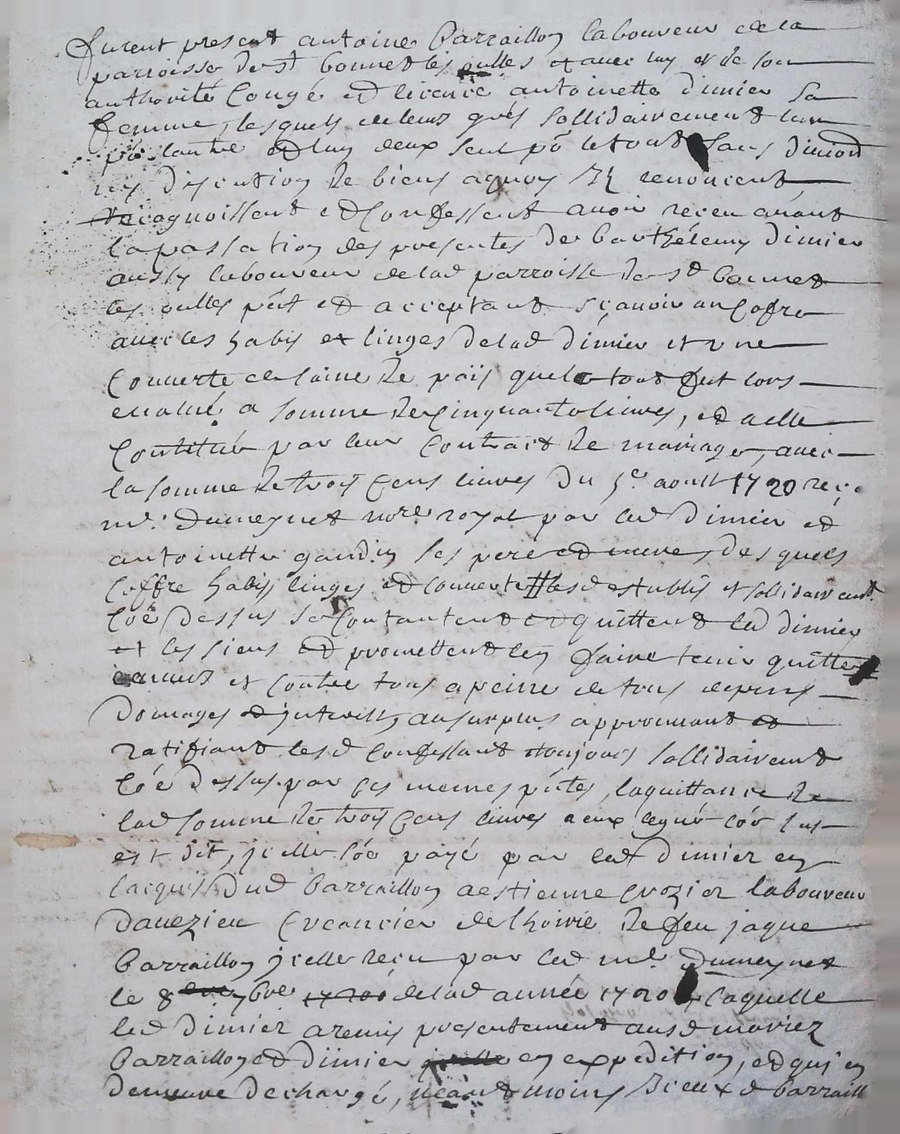 furent present antoine Barraillon laboureur de la
parroisse de st bonnet les oulles et avec luy et de son
authorité congé et licence antoinette dimier sa
femme, lesquels de leur grés sollidairement l'un
po l'autre et l'un deux seul po le tout sans division
ny discution de biens aquoy ilz renoncent
recognoissent et confessent avoir receu avant
la passation des presentes de Barthélemy dimier
aussy laboureur de lad parroisse de st bonnet
les oulles pnt et acceptant sçavoir un cofre
avec les habis et linges de lad dimier et une
couverte de laine de païs que le tout fut lors
evalué a somme de cinquante livres, et a elle
constitué par leur contract de mariage, avec
la somme de trois cens livres du 5e aoust 1720 reçu
me Dumeynet nore royal par led dimier et
antoinette gaudin ses pere et mere, desquels
coffre habis linges et couverte lesd establis et sollidairemt
coe dessus se contantent et quittent led dimier
et les siens et promettent len faire tenir quitte
envers et contre tous a peine de tous depens
domages et interests, au surplus approuvant et
ratifiant lesd confessant toujours sollidairement
coe dessus par ces memes pntes, la quittance de
lad somme de trois cens livres a eux legué coe sus
est dit, icelle soe payé par led dimier en
lacquis dud Barraillon a estienne crozier laboureur
davezieu creancier de lhoirie de feu jaque
Barraillon icelle receu par led me Dumeynet
le 8 bre 1720 de lad année 1720 laquelle
led dimier a remis presentement ausd mariez
Barraillon et dimier en expedition, et qui en
demeure decharge, neantmoins iceux d Barraill